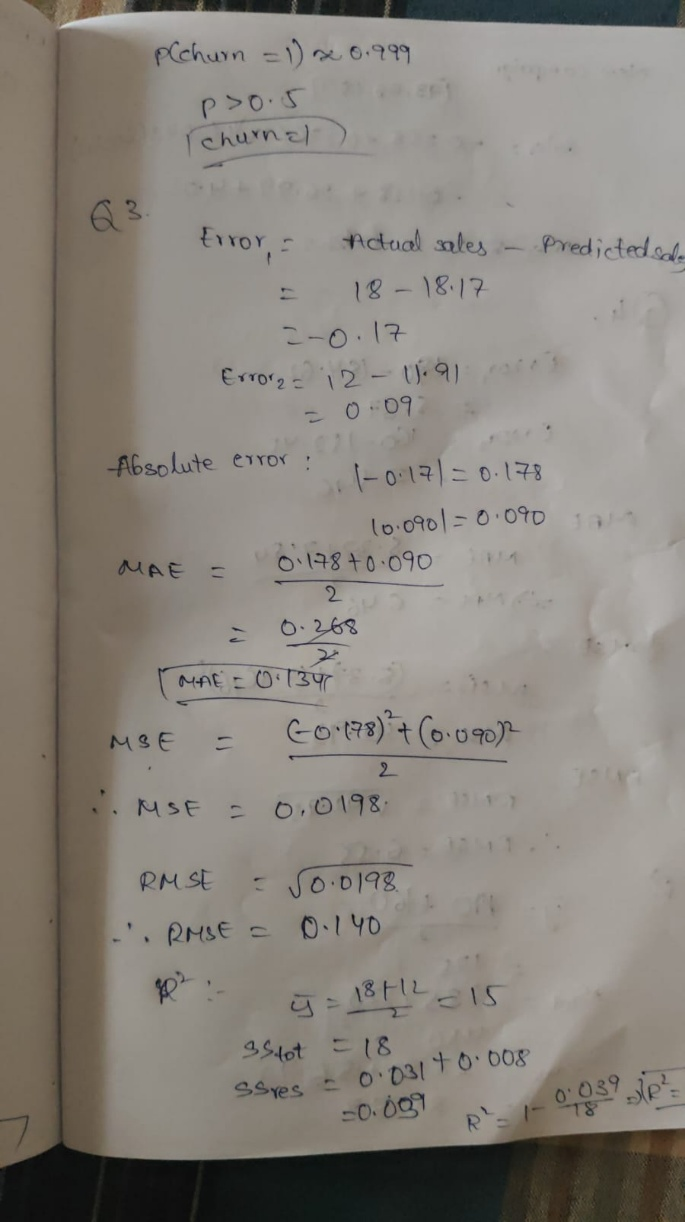 P(churn = 1) ≈ 0.999
P > 0.5
churn = 1
Q3.
Error₁ = Actual sales - Predicted sale
= 18 - 18.17
= -0.17
Error₂ = 12 - 11.91
= 0.09
Absolute error : |-0.17| = 0.178
|0.090| = 0.090
MAE = 0.178 + 0.090
2
= 0.268
2
MAE = 0.134
MSE = (-0.178)² + (0.090)²
2
∴ MSE = 0.0198
RMSE = √0.0198
∴ RMSE = 0.140
R² :- ȳ = 18+12/2 = 15
SStot = 18
SSres = 0.031 + 0.008
= 0.039
R² = 1 - 0.039/18 ⇒ R² =